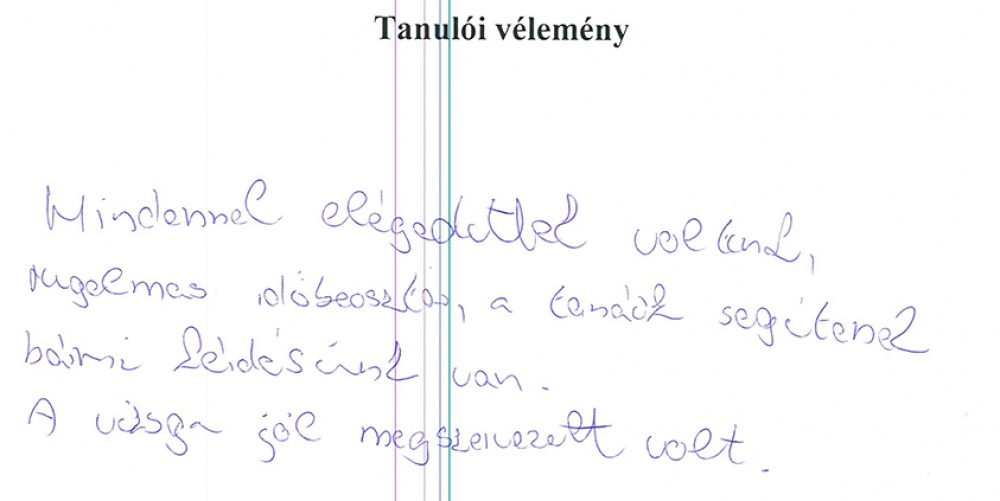 Tanulói vélemény
Mindennel elégedettek voltunk,
rugalmas időbeosztás, a tanárok segítenek
bármi kérdésünk van.
A vizsga jól megszervezett volt.